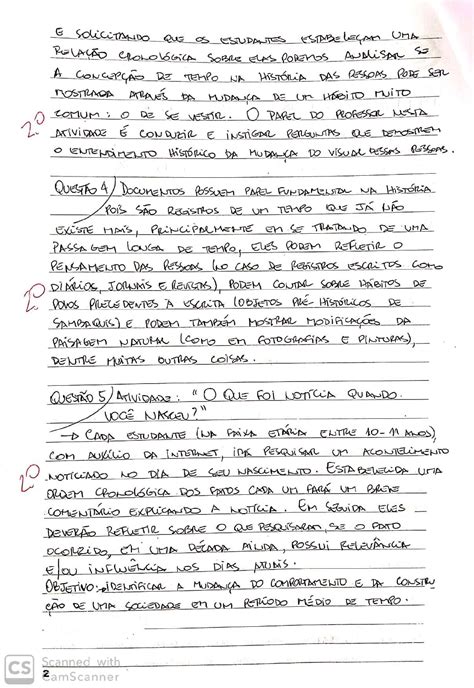 E SOLICITANDO QUE OS ESTUDANTES ESTABELEÇAM UMA
RELAÇÃO CRONOLÓGICA SOBRE ELAS PODEMOS ANALISAR SE
A CONCEPÇÃO DE TEMPO NA HISTÓRIA DAS PESSOAS PODE SER
MOSTRADA ATRAVÉS DA MUDANÇA DE UM HÁBITO MUITO
COMUM: O DE SE VESTIR. O PAPEL DO PROFESSOR NESTA
2.0
ATIVIDADE É CONDUZIR E INSTIGAR PERGUNTAS QUE DEMOSTREM
O ENTENDIMENTO HISTÓRICO DA MUDANÇA DO VISUAL DESSAS PESSOAS.
QUESTÃO 4) DOCUMENTOS POSSUEM PAPEL FUNDAMENTAL NA HISTÓRIA
POIS SÃO REGISTROS DE UM TEMPO QUE JÁ NÃO
EXISTE MAIS, PRINCIPALMENTE EM SE TRATANDO DE UMA
PASSAGEM LONGA DE TEMPO, ELES PODEM REFLETIR O
PENSAMENTO DAS PESSOAS (NO CASO DE REGISTROS ESCRITOS COMO
2.0
DIÁRIOS, JORNAIS E REVISTAS), PODEM CONTAR SOBRE HÁBITOS DE
POVOS PRECEDENTES À ESCRITA (OBJETOS PRÉ-HISTÓRICOS DE
SAMBAQUIS) E PODEM TAMBÉM MOSTRAR MODIFICAÇÕES DA
PAISAGEM NATURAL (COMO EM FOTOGRAFIAS E PINTURAS),
DENTRE MUITAS OUTRAS COISAS.
QUESTÃO 5) ATIVIDADE: "O QUE FOI NOTÍCIA QUANDO
VOCÊ NASCEU?"
→ CADA ESTUDANTE (NA FAIXA ETÁRIA ENTRE 10-11 ANOS),
COM AUXÍLIO DA INTERNET, IRÁ PESQUISAR UM ACONTECIMENTO
2.0
NOTICIADO NO DIA DE SEU NASCIMENTO. ESTABELECIDA UMA
ORDEM CRONOLÓGICA DOS FATOS CADA UM FARÁ UM BREVE
COMENTÁRIO EXPLICANDO A NOTÍCIA. EM SEGUIDA ELES
DEVERÃO REFLETIR SOBRE O QUE PESQUISARAM, SE O FATO
OCORRIDO, EM UMA DÉCADA AINDA, POSSUI RELEVÂNCIA
E/OU INFLUÊNCIA NOS DIAS ATUAIS.
OBJETIVO: IDENTIFICAR A MUDANÇA DO COMPORTAMENTO E DA CONSTRU
ÇÃO DE UMA SOCIEDADE EM UM PERÍODO MÉDIO DE TEMPO.
CS Scanned with
CamScanner
2